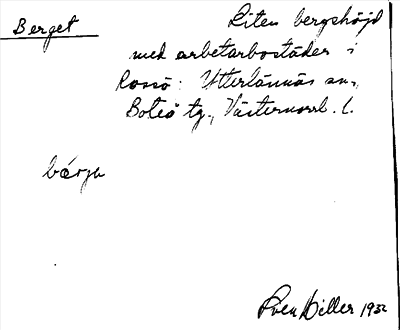 Berget
Liten bergshöjd
med arbetarbostäder i
Rossö: Ytterlännäs sn.,
Boteå tg., Västernorrl. l.
bérja
Sven Hiller 1932